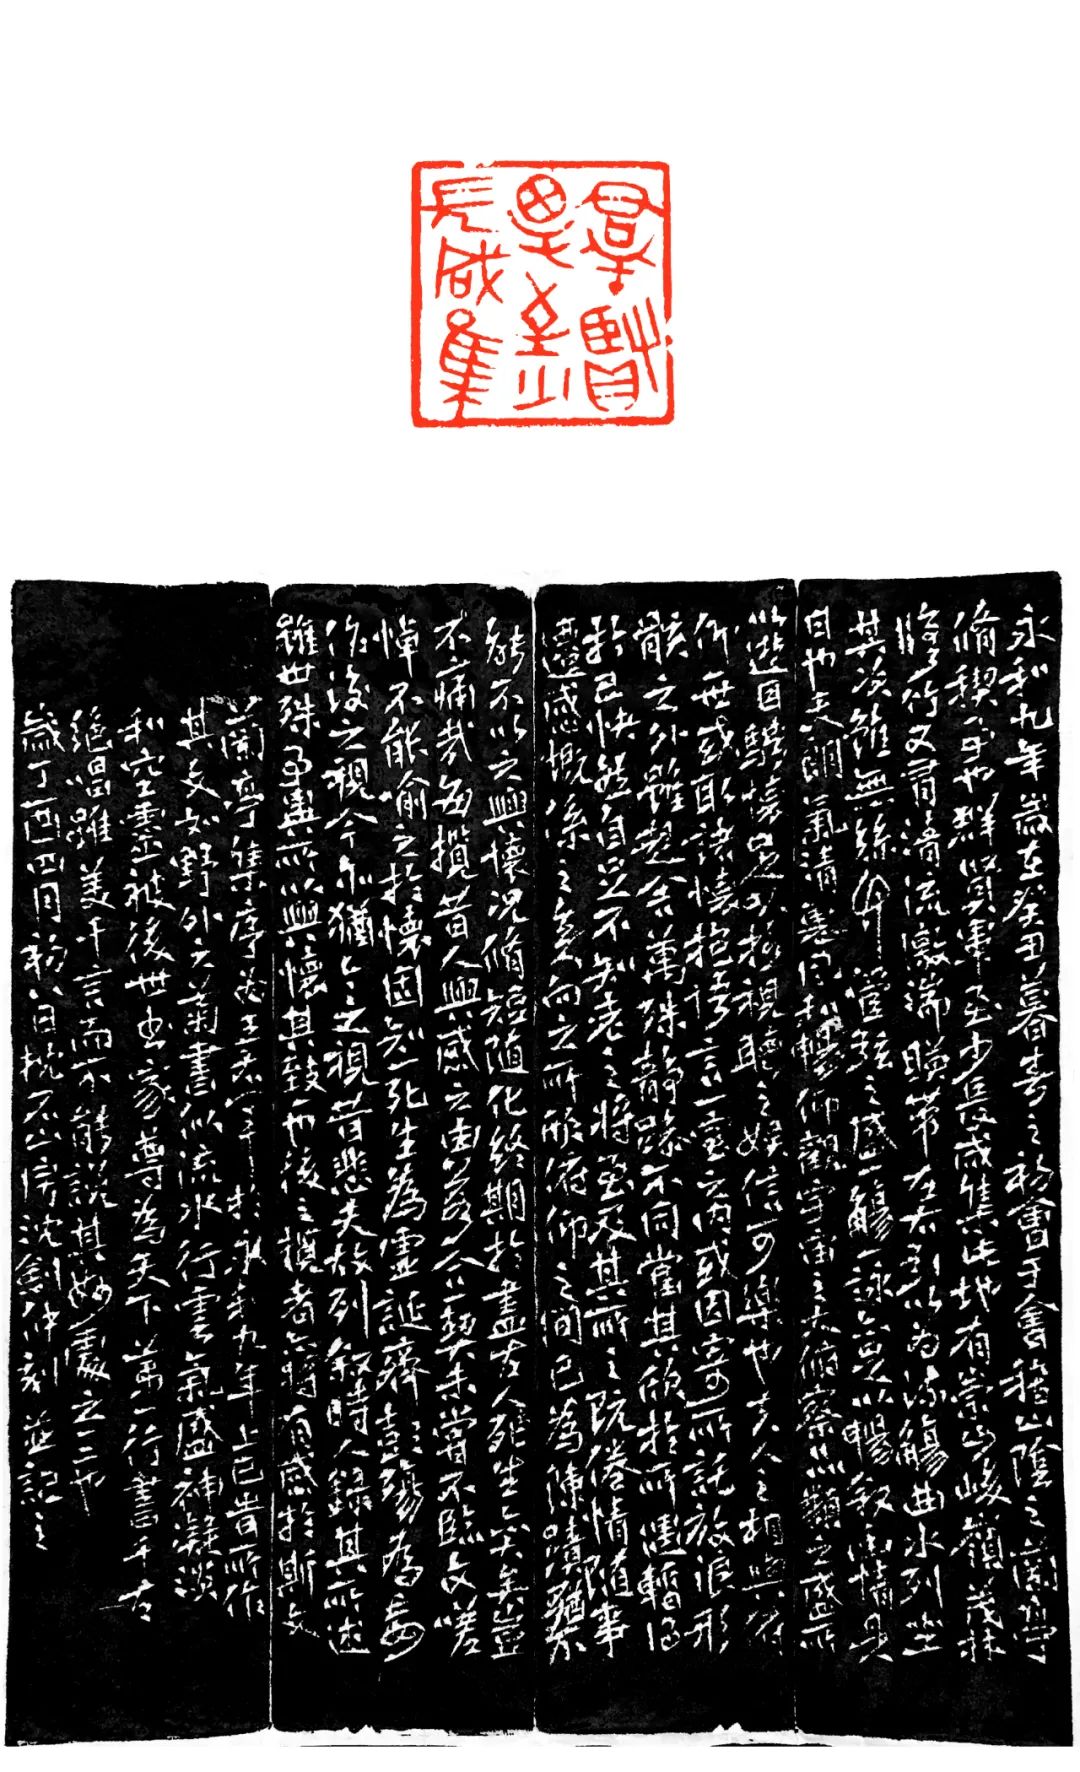 羣賢
畢至少
長咸集
永和九年歲在癸丑暮春之初會于會稽山陰之蘭亭
脩稧事也羣賢畢至少長咸集此地有崇山峻嶺茂林
脩竹又有清流激湍映帶左右引以為流觴曲水列坐
其次雖無絲竹管弦之盛一觴一詠亦足以暢敘幽情是
日也天朗氣清惠風和暢仰觀宇宙之大俯察品類之盛所
以遊目騁懷足以極視聽之娛信可樂也夫人之相與俯
仰一世或取諸懷抱悟言一室之內或因寄所託放浪形
骸之外雖趣舍萬殊靜躁不同當其欣於所遇暫得
於己快然自足不知老之將至及其所之既倦情隨事
遷感慨係之矣向之所欣俯仰之間已為陳跡猶不
能不以之興懷況脩短隨化終期於盡古人云死生亦大矣豈
不痛哉每攬昔人興感之由若合一契未嘗不臨文嗟
悼不能喻之於懷固知一死生為虛誕齊彭殤為妄
作後之視今亦猶今之視昔悲夫故列敘時人錄其所述
雖世殊事異所以興懷其致一也後之攬者亦將有感於斯文
蘭亭集序為王右軍於永和九年上巳昔所作
其文如野外之蘭書似流水行雲氣盛神凝
和空靈被後世書家尊為天下第一行書千古
絕唱雖美千言而不能說其妙處之二也
歲丁酉四月初八日 沈 刻並記之